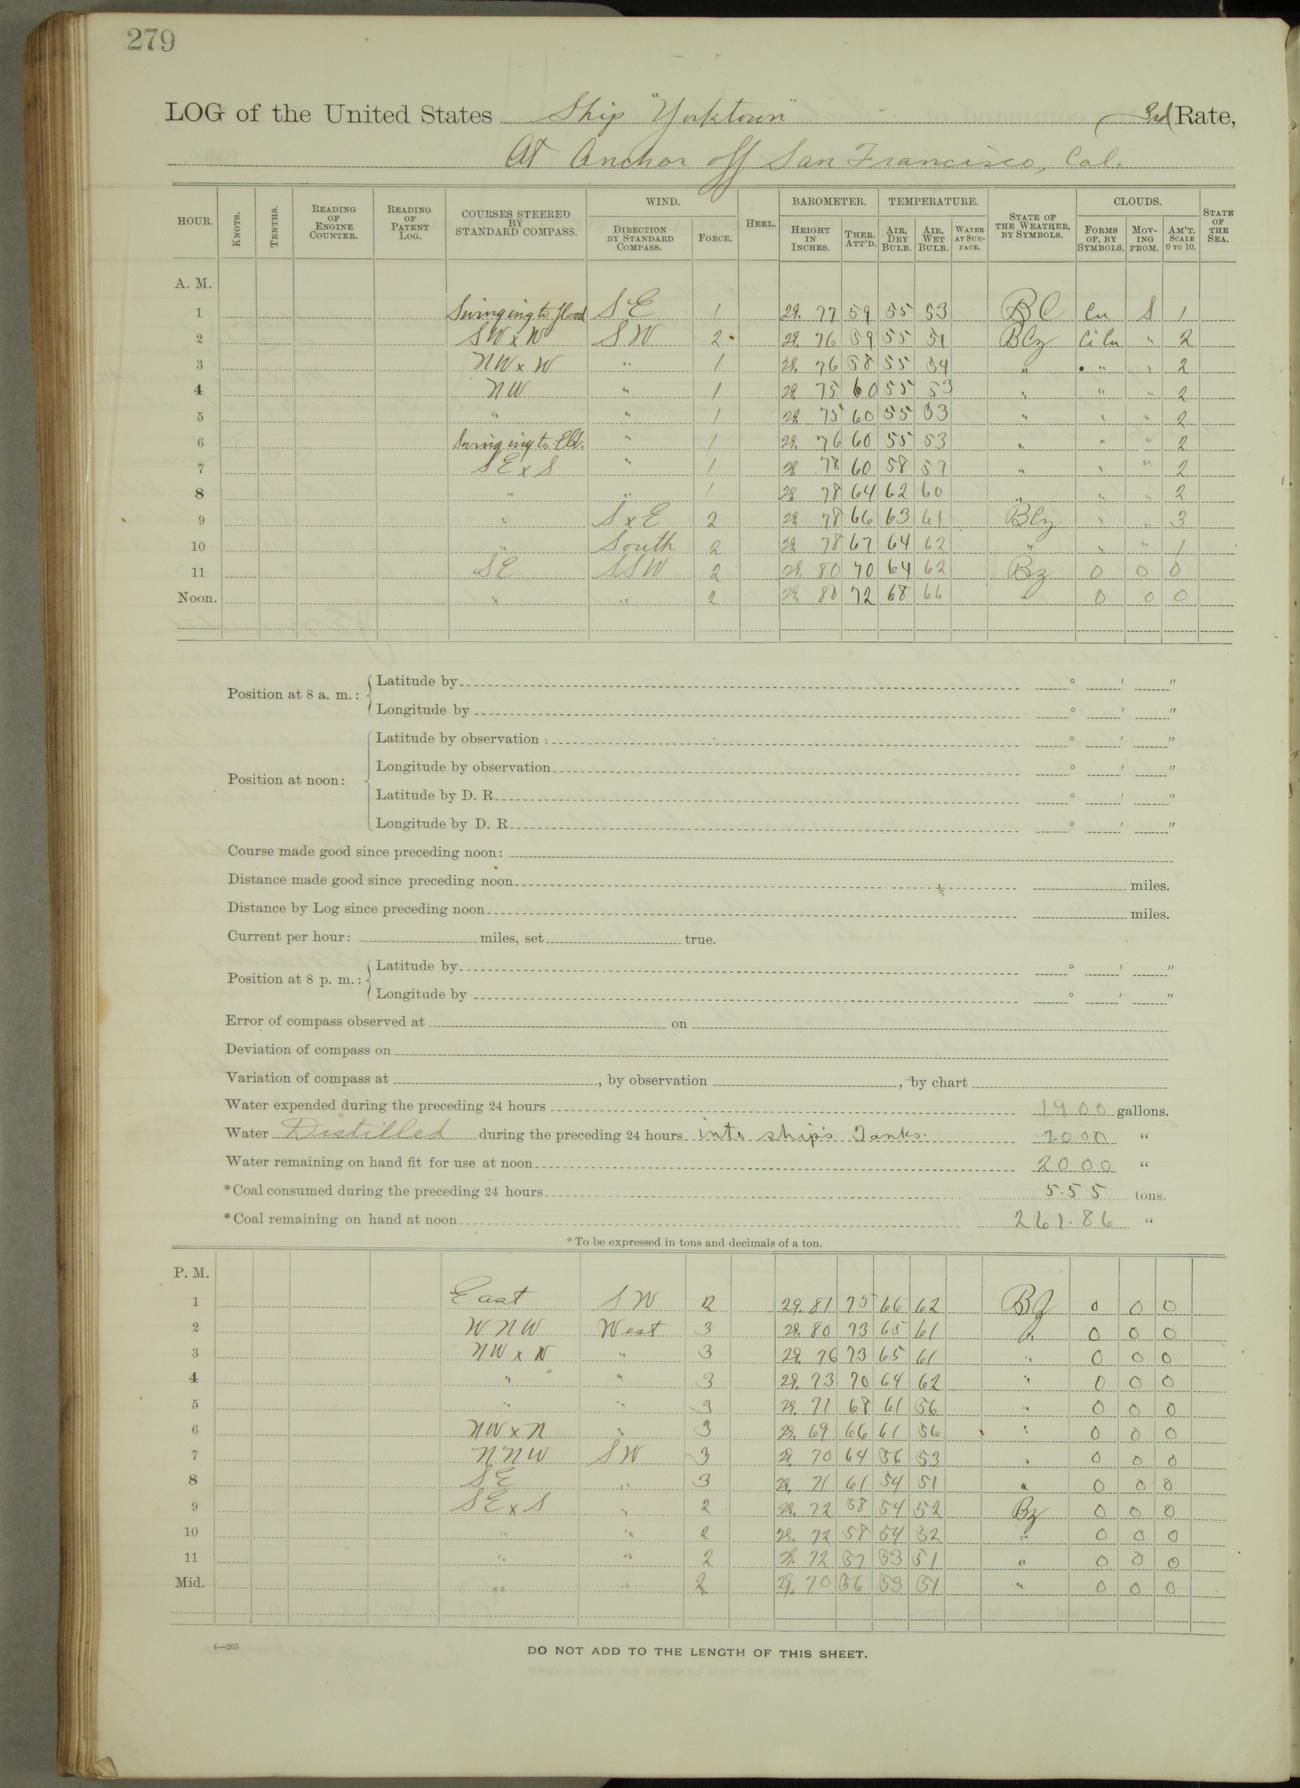 279
LOG of the United States Ship "Yorktown" 3rd Rate,
At Anchor off San Francisco, Cal.
HOUR. KNOTS. TENTHS. READING OF ENGINE COUNTER. READING OF PATENT LOG. COURSES STEERED BY STANDARD COMPASS. WIND. DIRECTION BY STANDARD COMPASS. FORCE. HEEL. BAROMETER. HEIGHT IN INCHES. THER. ATT'D. TEMPERATURE. AIR, DRY BULB. AIR, WET BULB. WATER AT SURFACE. STATE OF THE WEATHER, BY SYMBOLS. CLOUDS. FORMS OF, BY SYMBOLS. MOVING FROM. AM'T. SCALE 0 TO 10. STATE OF THE SEA.
A. M.
1 Swinging to flood SE 1 29.77 59 55 53 BC Cu S 1
2 SW x W SW 2 29.76 59 55 51 BCz Ci Cu " 2
3 NW x W " 1 29.76 58 55 54 " " " 2
4 NW " 1 29.75 60 55 53 " " " 2
5 " " 1 29.75 60 55 53 " " " 2
6 Swinging to Ebb. " 1 29.76 60 55 53 " " " 2
7 SE x S " 1 29 78 60 58 57 " " " 2
8 " " 1 29 78 64 62 60 " " " 2
9 " S x E 2 29. 78 66 63 61 BCz " " 3
10 " South 2 29 78 67 64 62 " " " 1
11 SE SSW 2 29. 80 70 64 62 Bz 0 0 0
Noon. " " 2 29 80 72 68 66 " 0 0 0
Position at 8 a. m.: Latitude by ° ' "
Longitude by ° ' "
Position at noon: Latitude by observation ° ' "
Longitude by observation ° ' "
Latitude by D. R. ° ' "
Longitude by D. R. ° ' "
Course made good since preceding noon:
Distance made good since preceding noon miles.
Distance by Log since preceding noon miles.
Current per hour: miles, set true.
Position at 8 p. m.: Latitude by ° ' "
Longitude by ° ' "
Error of compass observed at on
Deviation of compass on
Variation of compass at , by observation , by chart
Water expended during the preceding 24 hours 1900 gallons.
Water Distilled during the preceding 24 hours into ship's Tanks. 2000 "
Water remaining on hand fit for use at noon 2000 "
*Coal consumed during the preceding 24 hours 5.55 tons.
*Coal remaining on hand at noon 261.86 "
*To be expressed in tons and decimals of a ton.
P. M.
1 East SW 2 29.81 75 66 62 Bz 0 0 0
2 WNW West 3 29.80 73 65 61 " 0 0 0
3 NW x W " 3 29.76 73 65 61 " 0 0 0
4 " " 3 29.73 70 64 62 " 0 0 0
5 " " 3 29.71 68 61 56 " 0 0 0
6 NW x N " 3 29.69 66 61 56 " 0 0 0
7 NNW SW 3 29 70 64 56 53 " 0 0 0
8 SE " 3 29. 71 61 54 51 " 0 0 0
9 SE x S " 2 29. 72 58 54 52 Bz 0 0 0
10 " " 2 29. 72 58 54 52 " 0 0 0
11 " " 2 29. 72 57 53 51 " 0 0 0
Mid. " " 2 29. 70 56 53 51 " 0 0 0
4—265
DO NOT ADD TO THE LENGTH OF THIS SHEET.